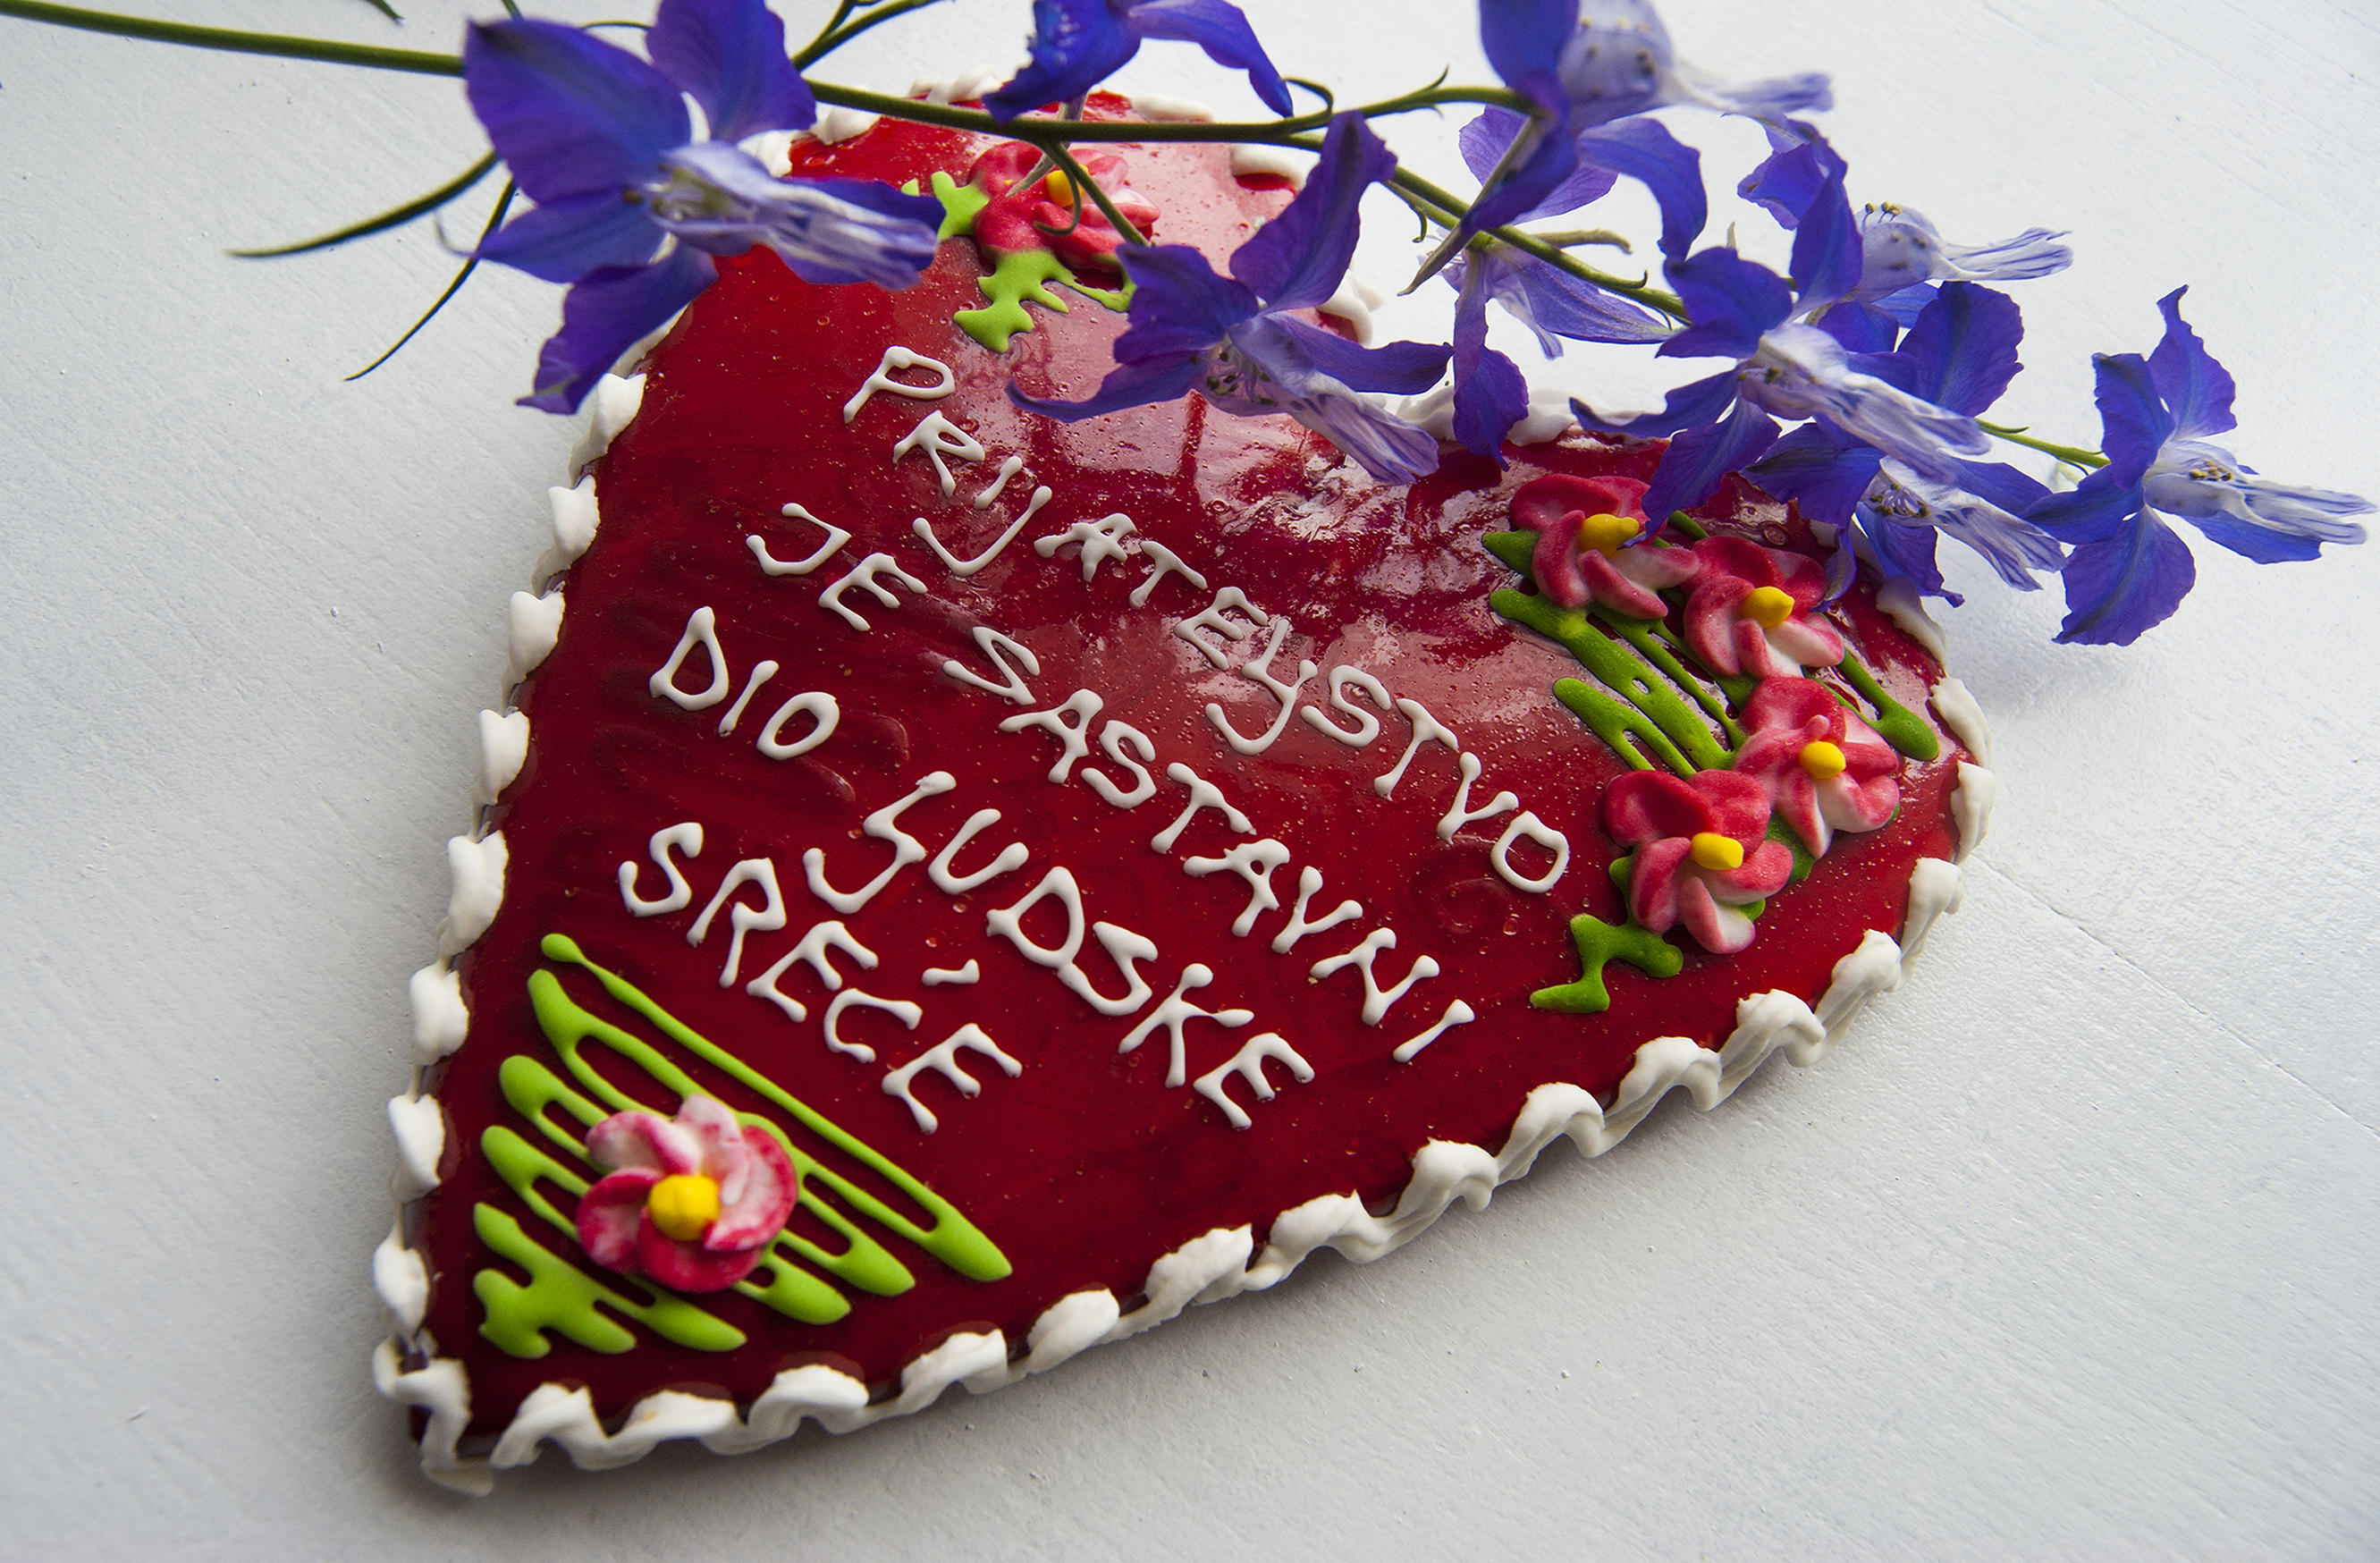 PRIJATELJSTVO
JE SASTAVNI
DIO LJUDSKE
SREĆE